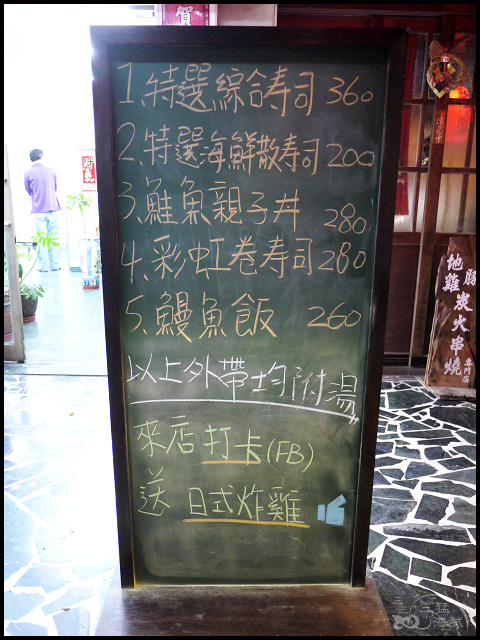 1.特選綜合壽司 360
2.特選海鮮散壽司 200
3.鮭魚親子丼 280
4.彩虹卷壽司 280
5.鰻魚飯 260
以上外帶均附湯
來店打卡(FB)
送 日式炸雞
豚
地雞炭火串燒
專門店